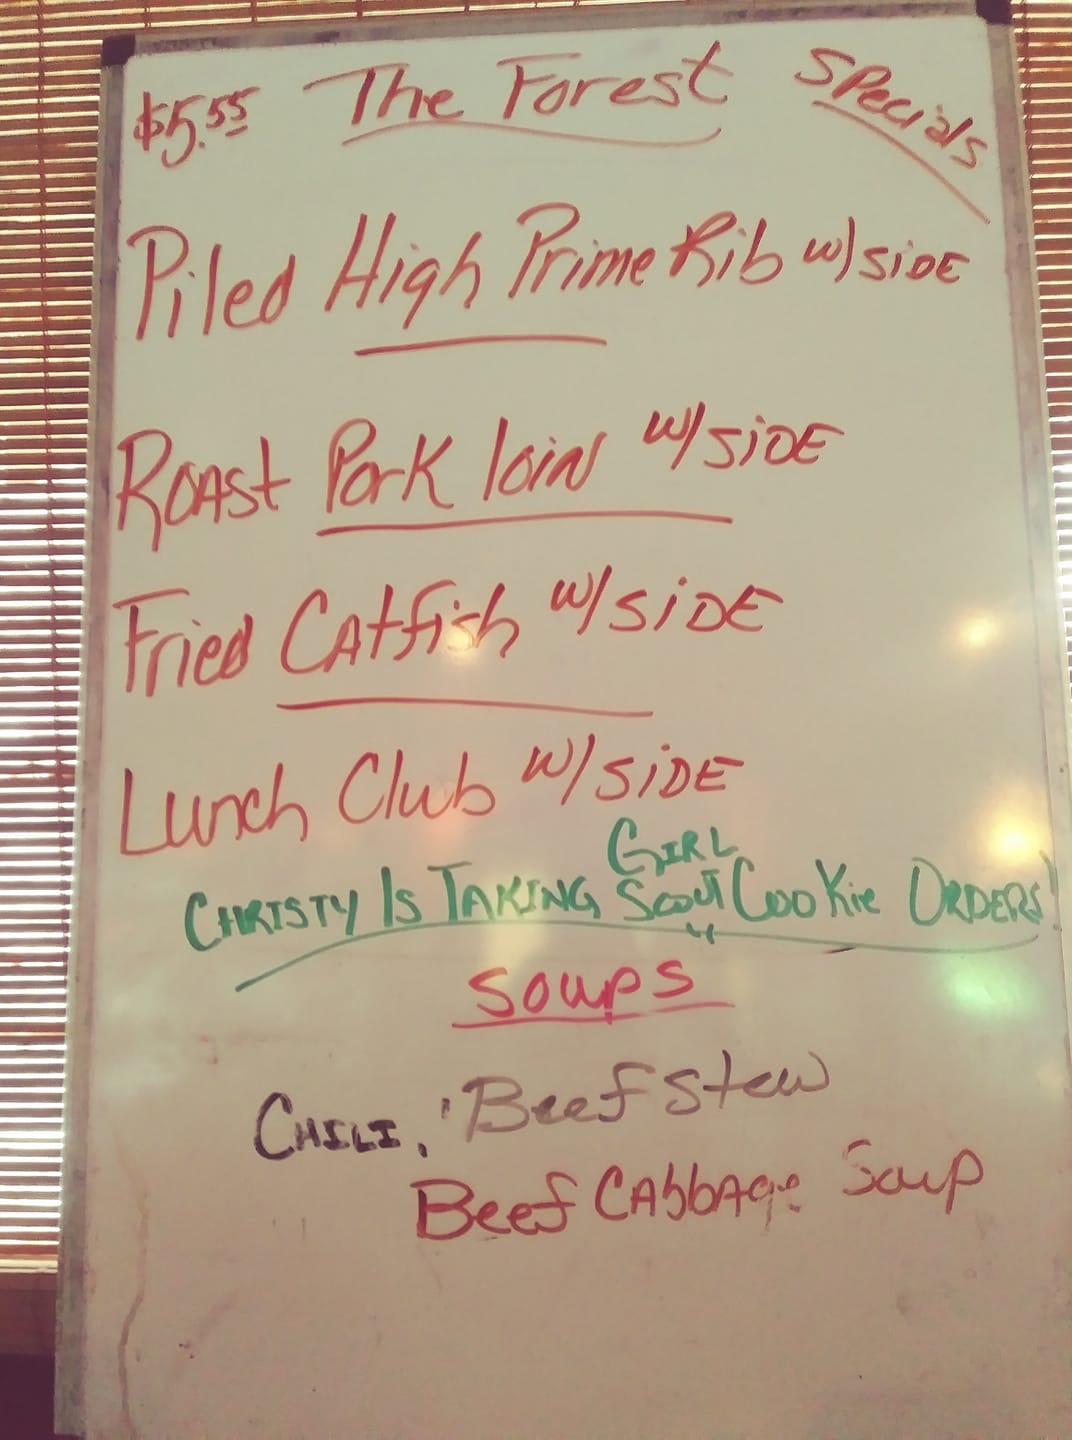 $5.55 The Forest Specials
Piled High Prime Rib w/ SiDE
ROAST Pork loiN w/ SiDE
Fried CAtfish w/ SiDE
Lunch Club w/ SiDE
GIRL
CHRISTY IS TAKING Scout COOKie ORDERS!
SOUPS
CHILI, Beef Stew
Beef CAbbAge Soup